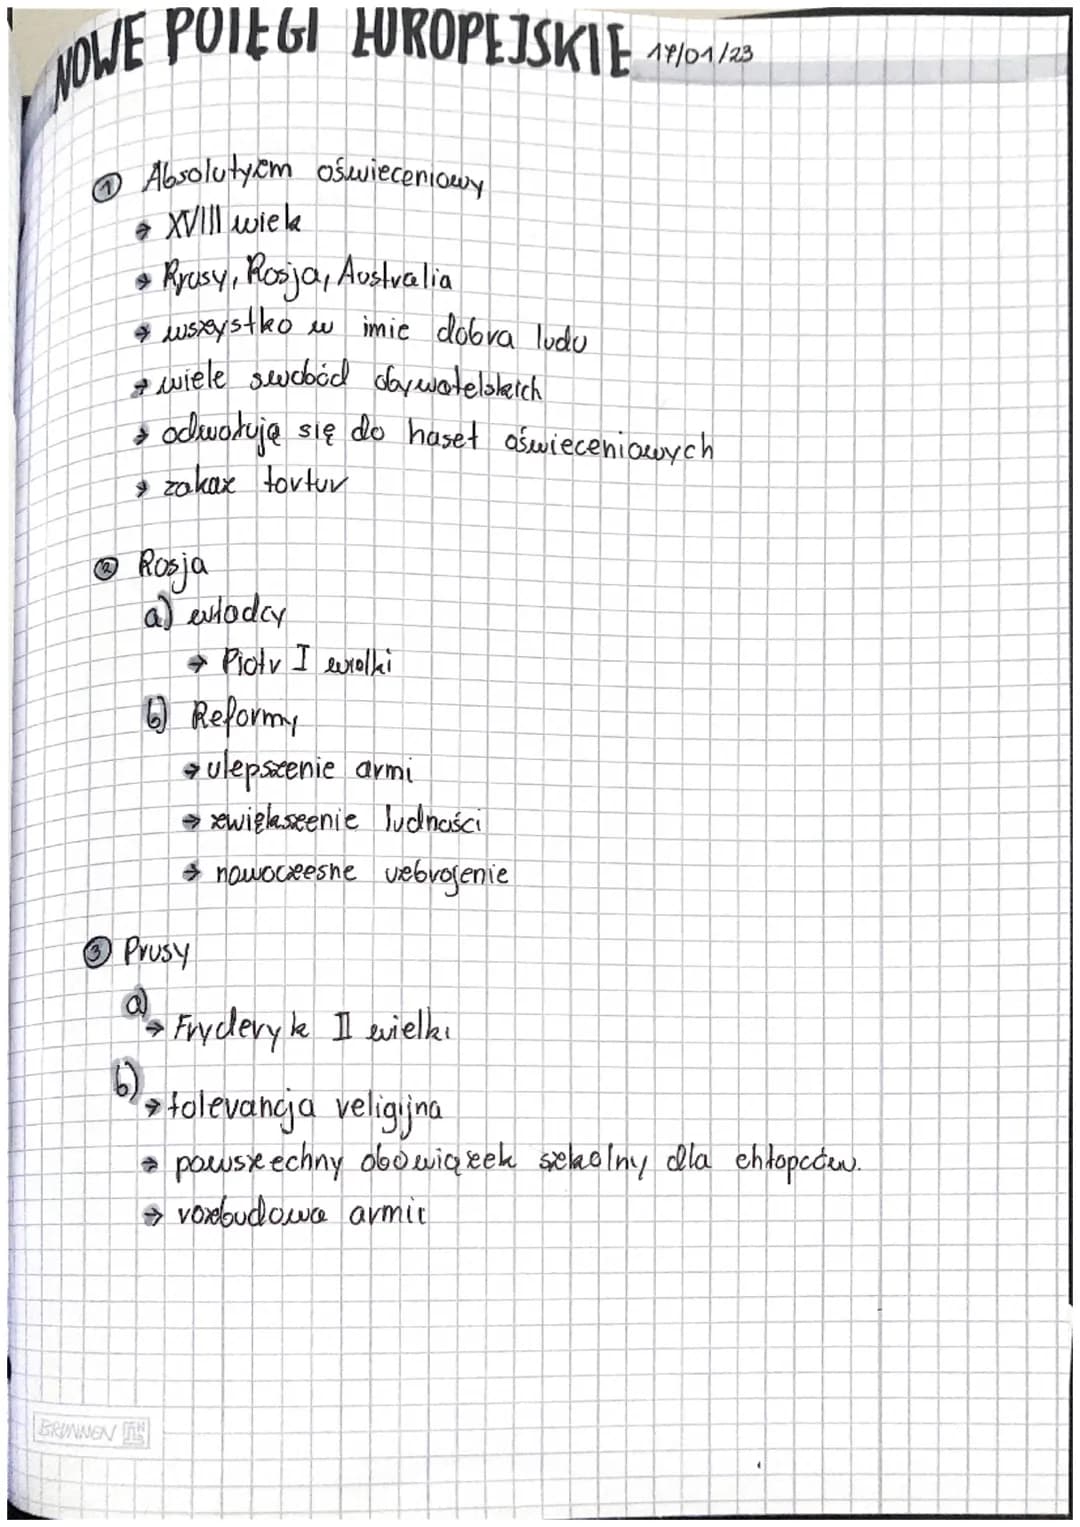 NOWE POTĘGI EUROPEJSKIE 17/01/23
① Absolutyzm oświeceniowy
→ XVIII wiek
→ Prusy, Rosja, Australia
→ wszystko w imie dobra ludu
→ wiele swobód obywatelskich
→ odwołują się do haseł oświeceniowych
→ zakaz tortur
② Rosja
a) władcy
→ Piotr I wielki
b) Reformy
→ ulepszenie armi
→ zwiększenie ludności
→ nowoczesne uzbrojenie
③ Prusy
a)
→ Fryderyk II wielki
b)
→ tolerancja religijna
→ powszechny obowiązek szkolny dla chłopców.
→ rozbudowa armii
BRUNNEN